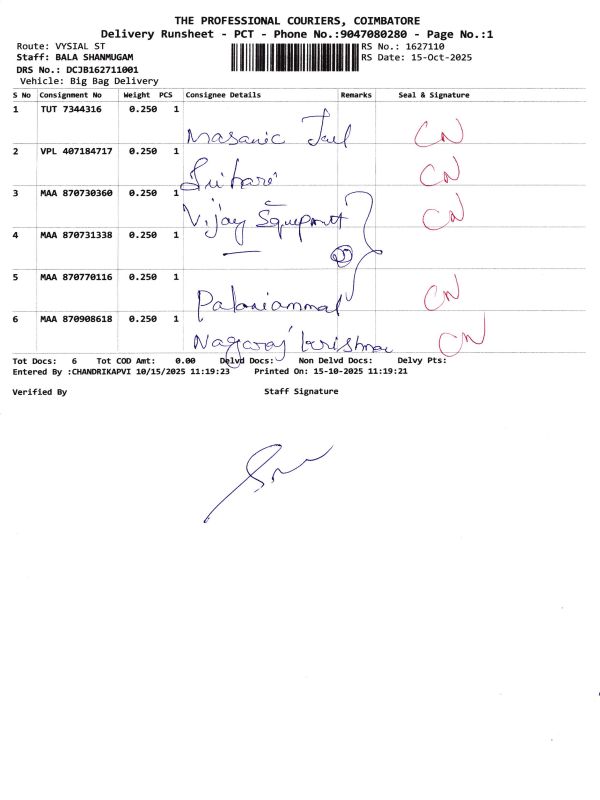 THE PROFESSIONAL COURIERS, COIMBATORE
Delivery Runsheet - PCT - Phone No.:9047080280 - Page No.:1
Route: VYSIAL ST RS No.: 1627110
Staff: BALA SHANMUGAM RS Date: 15-Oct-2025
DRS No.: DCJB162711001
Vehicle: Big Bag Delivery
S No Consignment No Weight PCS Consignee Details Remarks Seal & Signature
1 TUT 7344316 0.250 1
CN
2 VPL 407184717 0.250 1
CN
3 MAA 870730360 0.250 1
Vijay CN
4 MAA 870731338 0.250 1
5 MAA 870770116 0.250 1
Palaniammal CN
6 MAA 870908618 0.250 1
Nagaraj krishna CN
Tot Docs: 6 Tot COD Amt: 0.00 Delvd Docs: Non Delvd Docs: Delvy Pts:
Entered By :CHANDRIKAPVI 10/15/2025 11:19:23 Printed On: 15-10-2025 11:19:21
Verified By Staff Signature